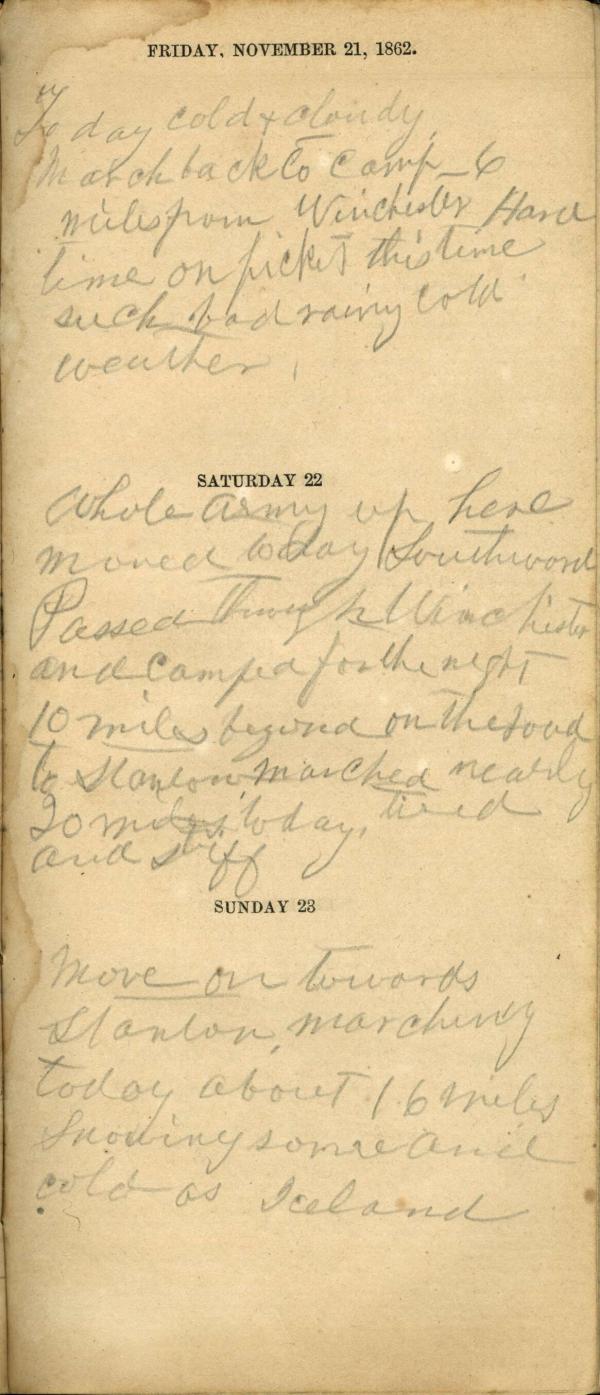 FRIDAY, NOVEMBER 21, 1862.
To day cold & cloudy
March back to Camp 6
miles from Winchester Hard
time on picket this time
such bad rainy cold
weather
SATURDAY 22
Whole army up here
moved today Southward
Passed Through Winchester
and camped for the night
10 miles beyond on the road
to Stanton, marched nearly
20 miles today, tired
and stiff
SUNDAY 23
Move on towards
Stanton, marching
today about 16 miles
Snowing some and
cold as Iceland